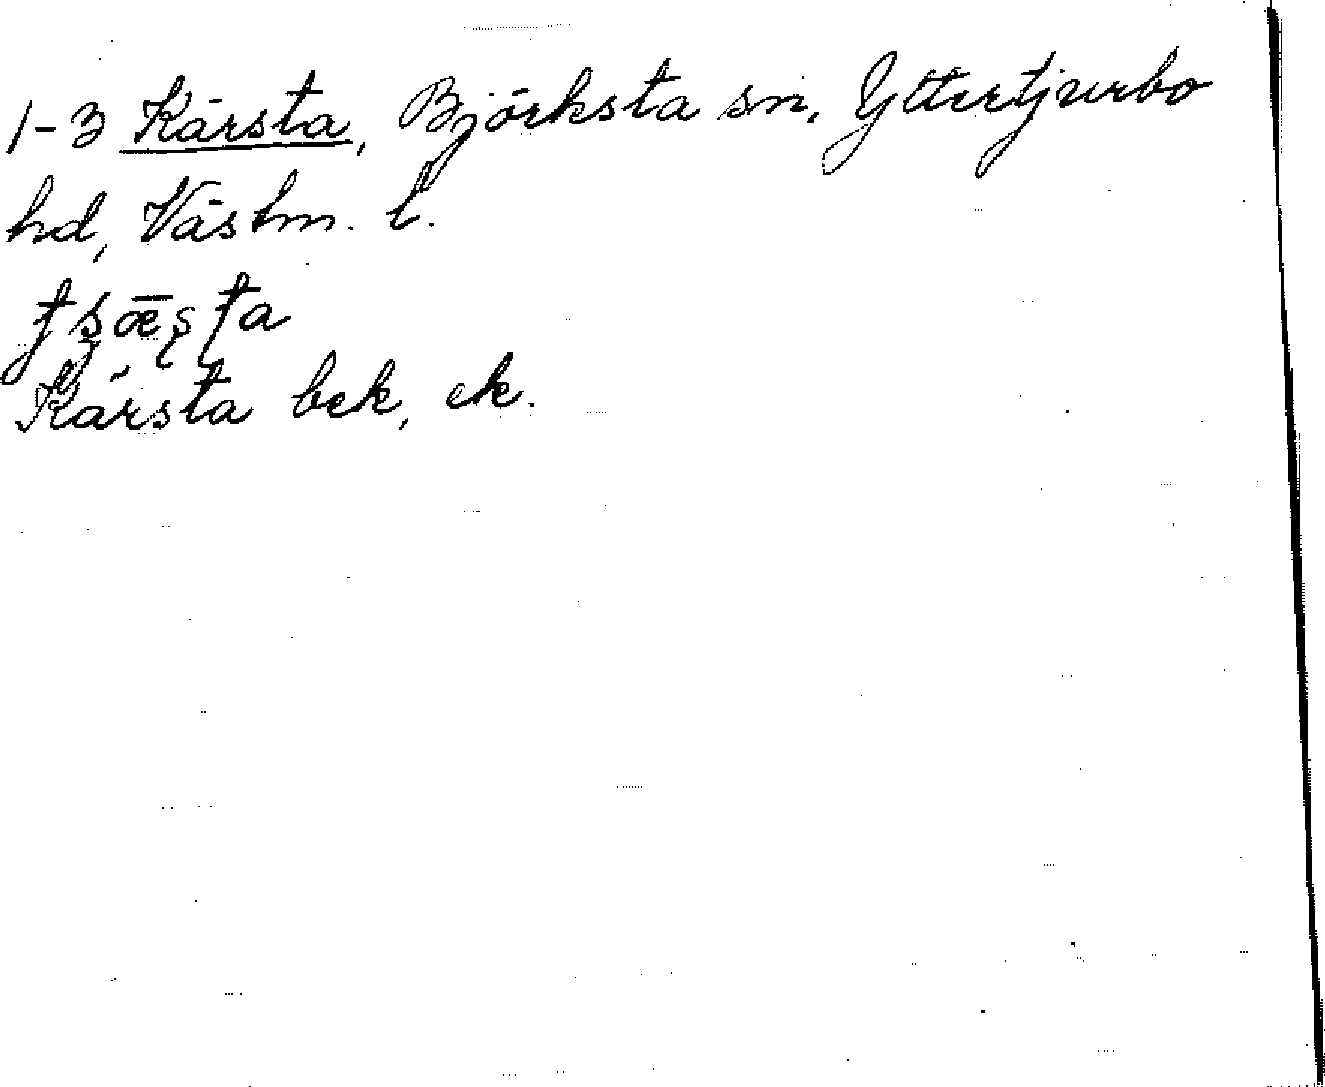 1-3 Kärsta, Björksta sn, Yttertjurbo
hd, Västm. l.
Kärsta bek, ek.